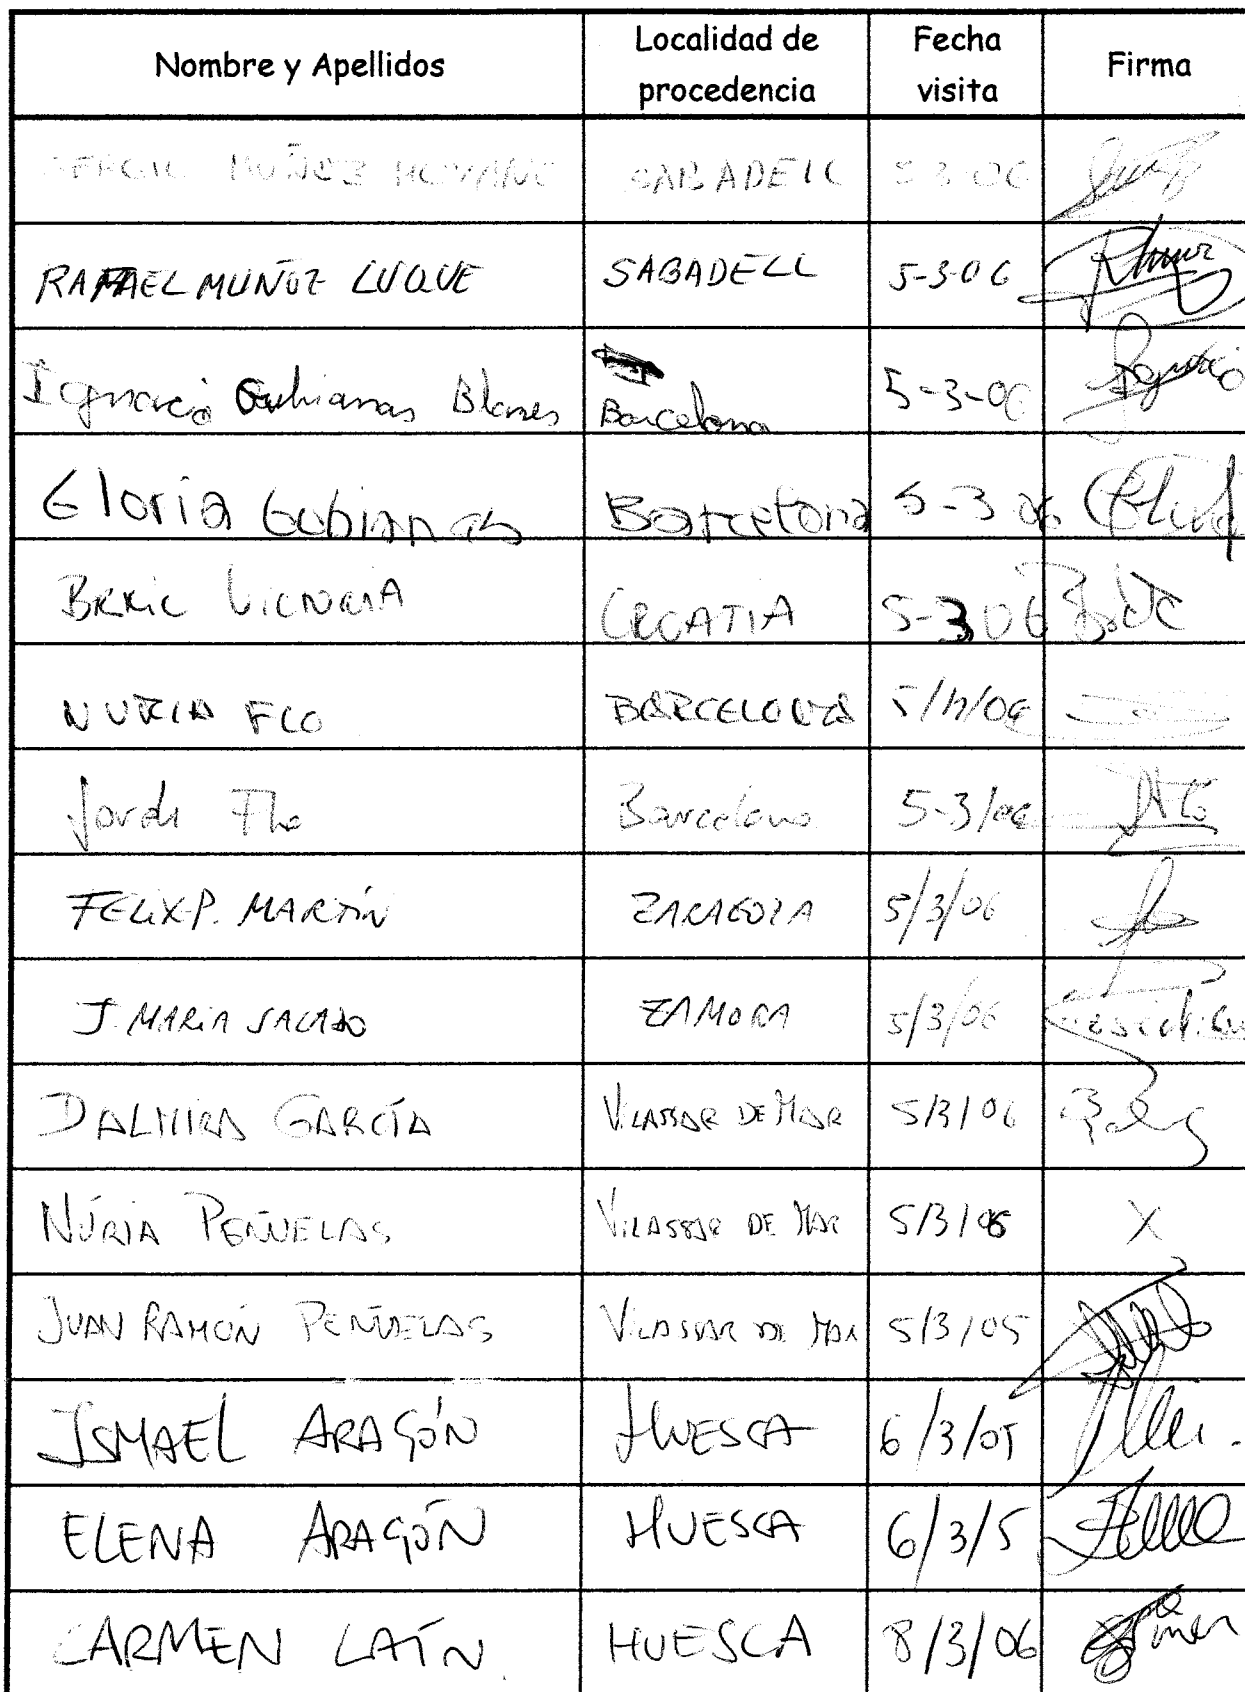 Nombre y Apellidos Localidad de procedencia Fecha visita Firma
MUÑOZ SABADELL 5-3-06
RAFAEL MUÑOZ LUQUE SABADELL 5-3-06
Ignacio Gubianas Blanes Barcelona 5-3-06
Gloria Gubianas Barcelona 5-3 06
BRKIC VICTORIA CROATIA 5-3 06
NURIA FLO BARCELONA 5/ /06
Jordi Flo Barcelona 5-3/06
FELIX P. MARTÍN ZARAGOZA 5/3/06
J. MARIA SALADO ZAMORA 5/3/06
DALMIRA GARCÍA VILASSAR DE MAR 5/3/06
NÚRIA PEÑUELAS VILASSAR DE MAR 5/3/06 X
JUAN RAMÓN PEÑUELAS VILASSAR DE MAR 5/3/05
ISMAEL ARAGÓN HUESCA 6/3/05
ELENA ARAGÓN HUESCA 6/3/5
CARMEN LAÍN HUESCA 8/3/06